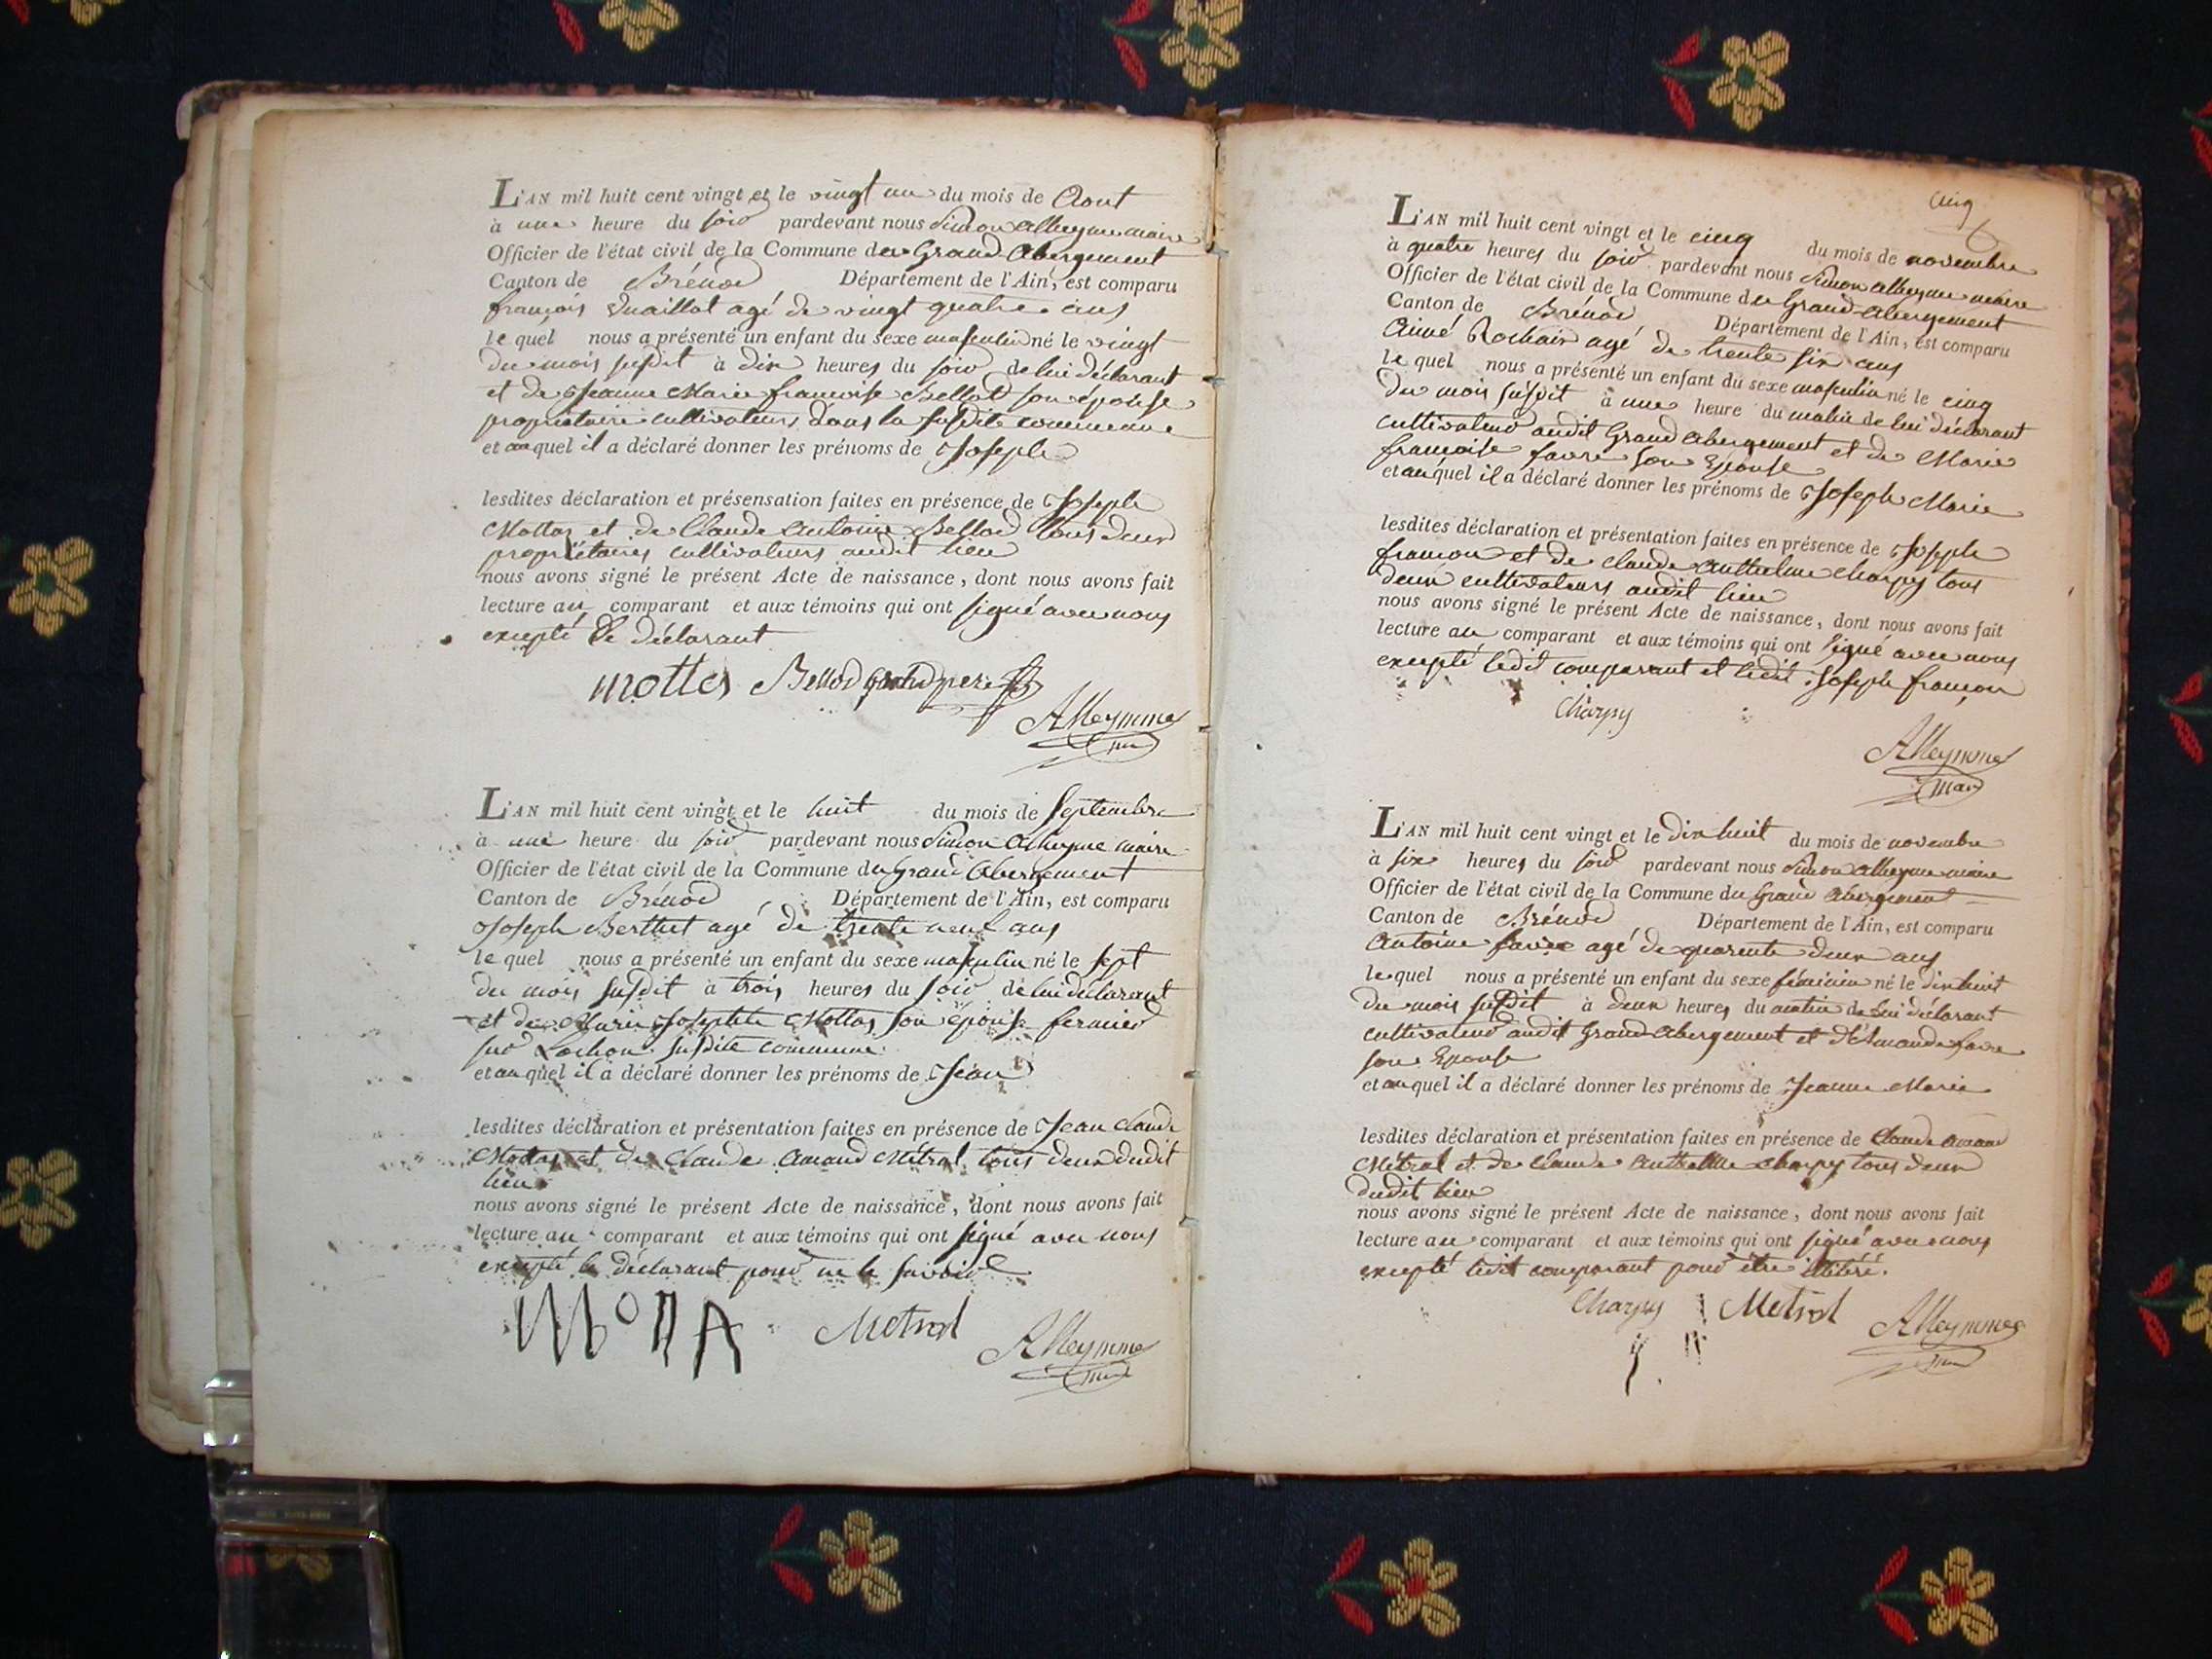 L'AN mil huit cent vingt et le vingt un du mois de Aout
à une heure du soir pardevant nous Simon Alleyme maire
Officier de l'état civil de la Commune du Grand Abergement
Canton de Brénod Département de l'Ain, est comparu
françois agé de vingt quatre ans
le quel nous a présenté un enfant du sexe masculin né le vingt
du mois susdit à dix heures du soir de lui déclarant
et de Jeanne Marie francoise Bellod son epouse
propriétaire cultivateurs dans la susdite commune
et au quel il a déclaré donner les prénoms de Joseph
lesdites déclaration et présensation faites en présence de Joseph
Mottas et de Claude Antoine Bellod tous deux
propriétaires cultivateurs audit lieu
nous avons signé le présent Acte de naissance, dont nous avons fait
lecture au comparant et aux témoins qui ont signé avec nous
excepté le déclarant
mottas Bellod grand pere
Alleymme
L'AN mil huit cent vingt et le huit du mois de Septembre
à une heure du soir pardevant nous Simon Alleyme maire
Officier de l'état civil de la Commune du Grand Abergement
Canton de Brénod Département de l'Ain, est comparu
Joseph Berthet agé de trente neuf ans
le quel nous a présenté un enfant du sexe masculin né le sept
du mois susdit à trois heures du soir de lui déclarant
et de Marie Josephte Mottas son épouse fermier
sur Lochon susdite commune
et au quel il a déclaré donner les prénoms de Jean
lesdites déclaration et présentation faites en présence de Jean Claude
Mottas et de Claude Amand Métral tous deux dudit
lieu
nous avons signé le présent Acte de naissance, dont nous avons fait
lecture au comparant et aux témoins qui ont signé avec nous
excepté le déclarant pour ne le savoir
MOTTA Metral
Alleymme
cinq
L'AN mil huit cent vingt et le cinq du mois de novembre
à quatre heures du soir pardevant nous Simon Alleyme maire
Officier de l'état civil de la Commune du Grand Abergement
Canton de Brénod Département de l'Ain, est comparu
Aimé Rochaix agé de trente six ans
le quel nous a présenté un enfant du sexe masculin né le cinq
du mois susdit à une heure du matin de lui déclarant
cultivateur audit Grand Abergement et de Marie
françoise favre son Epouse
et au quel il a déclaré donner les prénoms de Joseph Marie
lesdites déclaration et présentation faites en présence de Joseph
françon et de Claude Anthelme Charpy tous
deux cultivateurs audit lieu
nous avons signé le présent Acte de naissance, dont nous avons fait
lecture au comparant et aux témoins qui ont signé avec nous
excepté ledit comparant et ledit Joseph françon
Charpy
Alleymme
maire
L'AN mil huit cent vingt et le dix huit du mois de novembre
à six heures du soir pardevant nous Simon Alleyme maire
Officier de l'état civil de la Commune du Grand Abergement
Canton de Brénod Département de l'Ain, est comparu
Antoine favre agé de quarente deux ans
le quel nous a présenté un enfant du sexe féminin né le dix huit
du mois susdit à deux heures du matin de lui déclarant
cultivateur audit Grand Abergement et d'Amande favre
son Epouse
et au quel il a déclaré donner les prénoms de Jeanne Marie
lesdites déclaration et présentation faites en présence de Claude Amand
Métral et de Claude Anthelme Charpy tous deux
dudit lieu
nous avons signé le présent Acte de naissance, dont nous avons fait
lecture au comparant et aux témoins qui ont signé avec nous
excepté ledit comparant pour être illitéré.
Charpy Metral
Alleymme